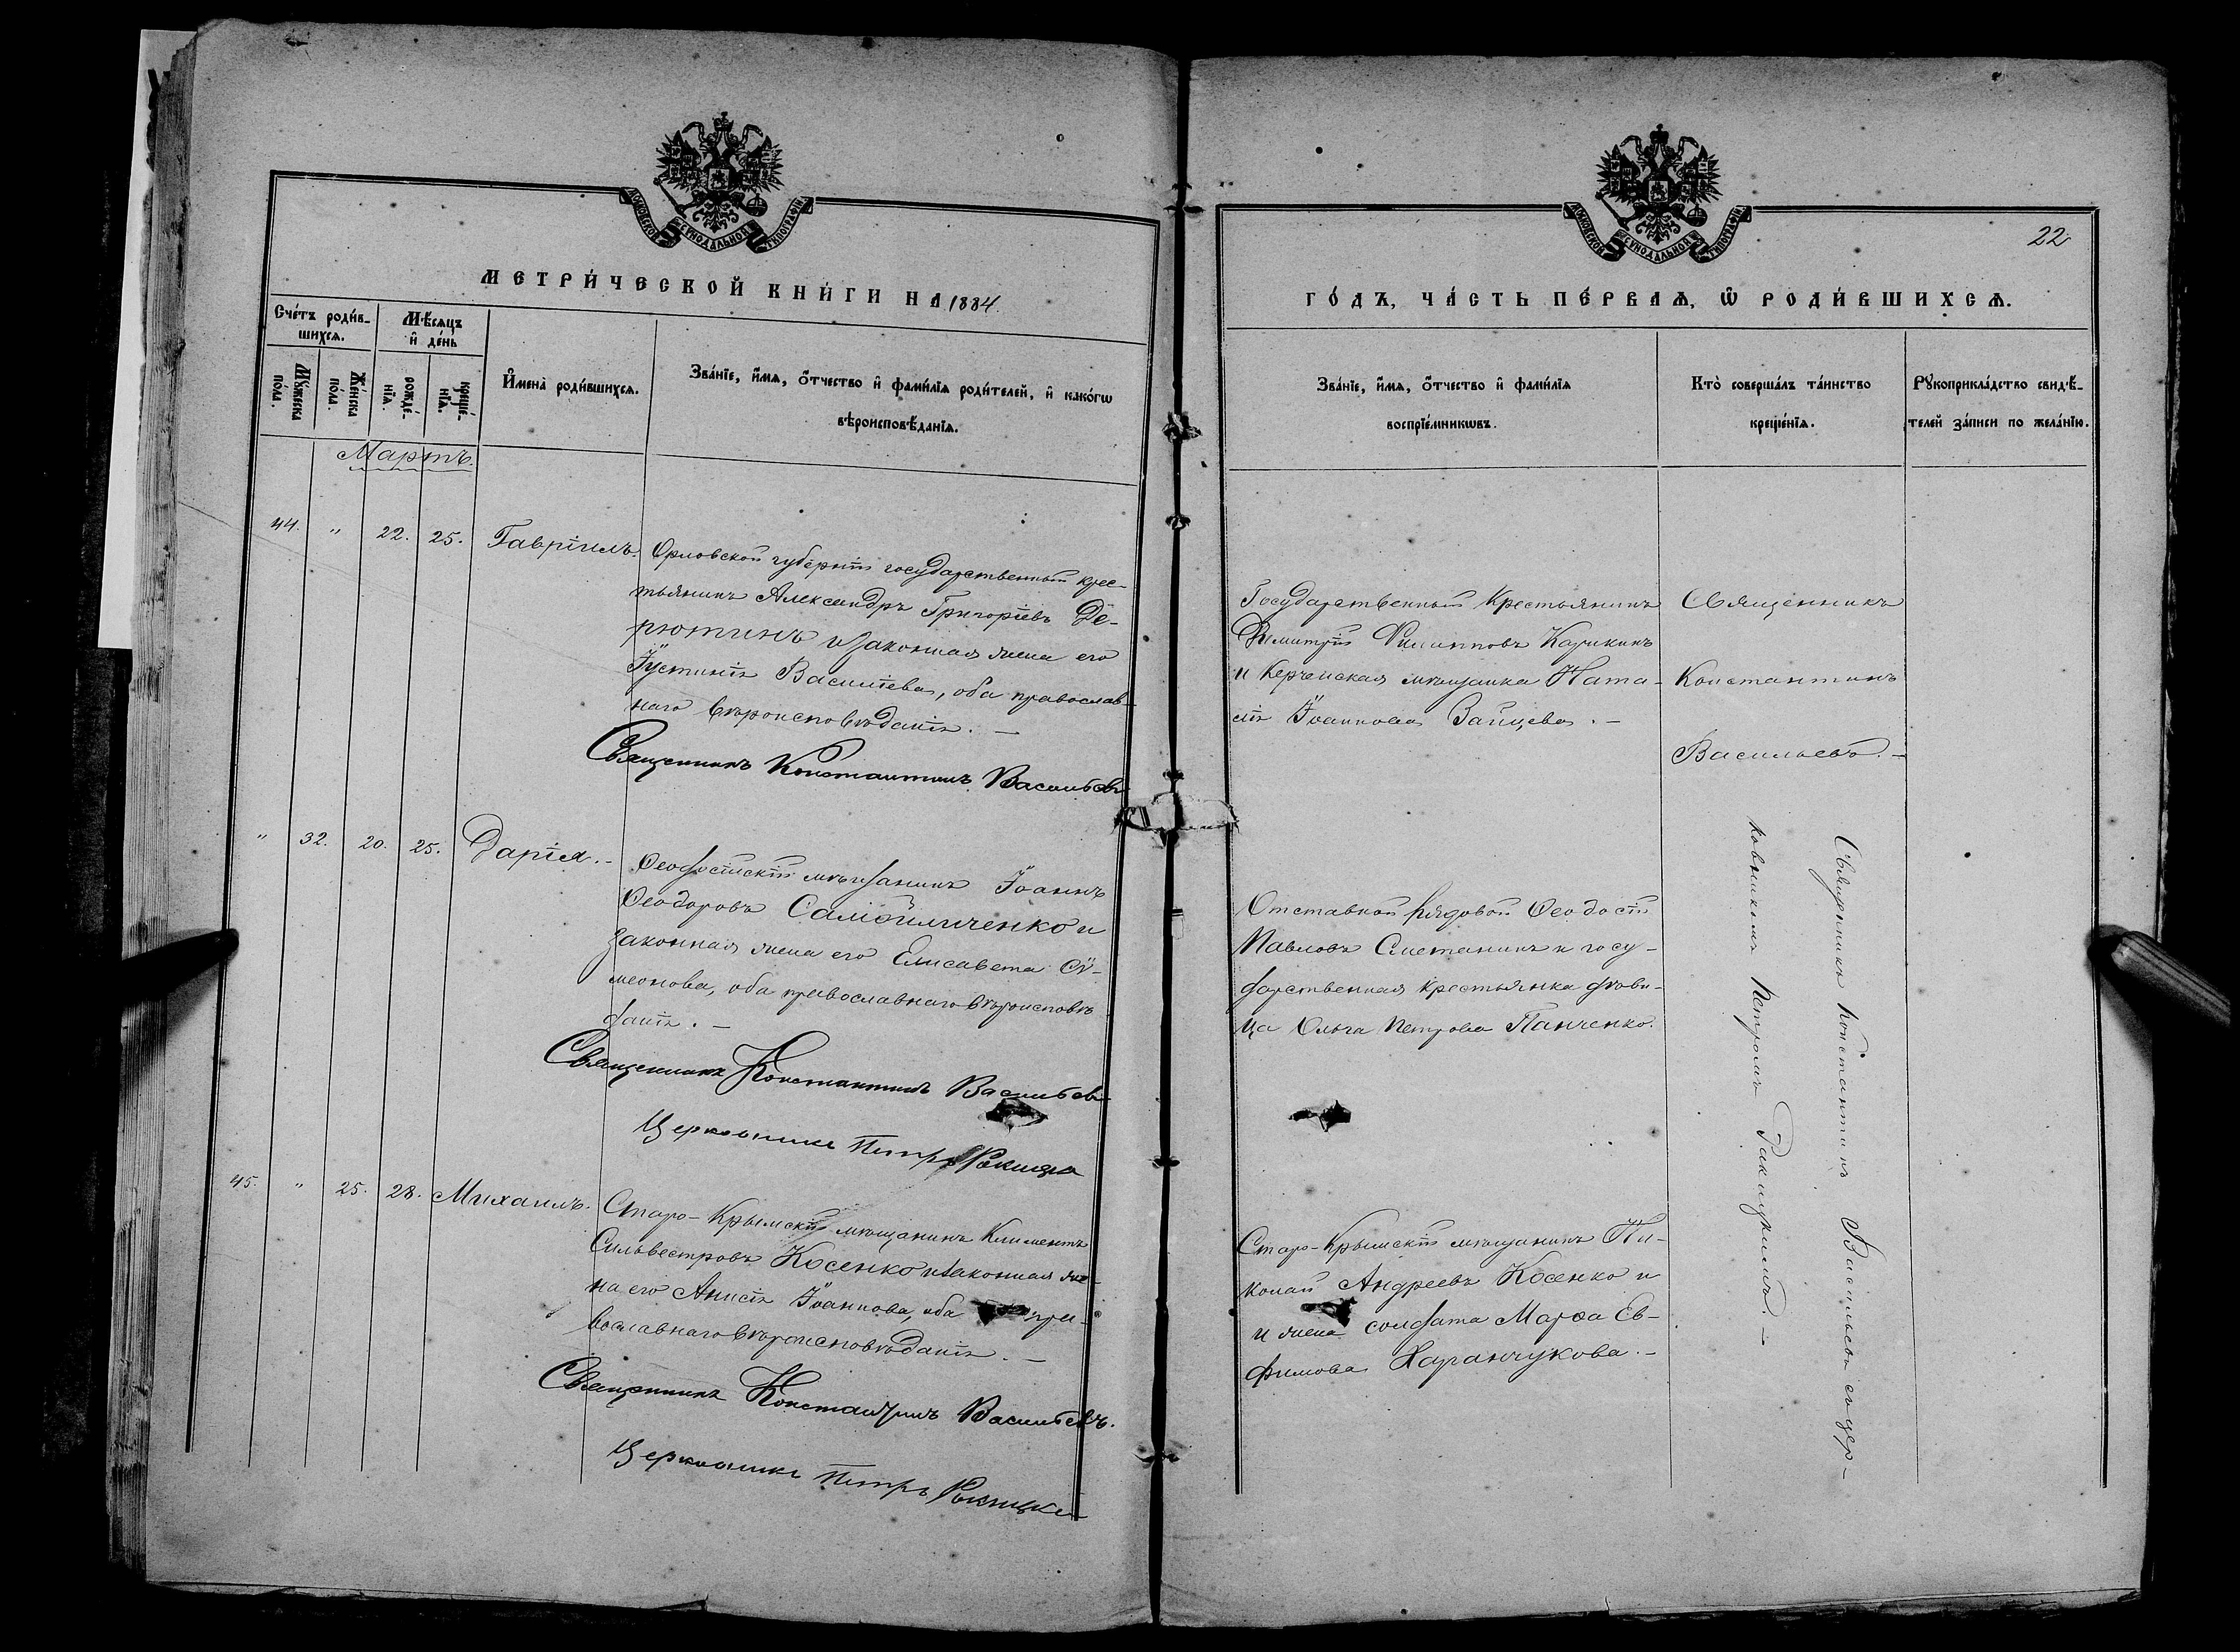 МОСКОВСКОЙ СУНОДАЛЬНОЙ ТИПОГРАФІИ
МЕТРИ́ЧЕСКОЙ КНИ́ГИ НА 1884.
Сче́тъ роди́в-
шихсѧ.
Мѣ́сѧцъ
и҆ де́нь
Му́жеска
по́ла.
Же́нска
по́ла.
рожде́-
нїѧ.
креще́-
нїѧ.
И҆мена̀ роди́вшихсѧ.
Зва́нїе, и҆́мѧ, ѻ҆́тчество и҆ фами́лїѧ роди́телей, и҆ како́гѡ
вѣроисповѣ́данїѧ.
Мартъ.
44. " 22. 25. Гавріилъ.
Орловской губерніи государственный крес-
тьянинъ Александръ Григоріевъ Де-
рютинъ и законная жена его
Іустинія Василіева, оба православ-
наго вѣроисповѣданія. —
Священникъ Константинъ Васильевъ
" 32. 20. 25. Дарія. -
Ѳеодосійскій мѣщанинъ Іоаннъ
Ѳеодоровъ Самойличенко и
законная жена его Елисавета Сѵ-
меонова, оба православнаго вѣроисповѣ
данія. —
Священникъ Константинъ Васильевъ
Церковникъ Петръ Ракицкій
45. " 25. 28. Михаилъ.
Старо-Крымскій мѣщанинъ Климентъ
Сильвестровъ Косенко и законная же-
на его Анисія Іоаннова, оба пра-
вославнаго вѣроисповѣданія. —
Священникъ Константинъ Васильевъ.
Церковникъ Петръ Ракицкій
МОСКОВСКОЙ СУНОДАЛЬНОЙ ТИПОГРАФІИ
22
ГО́ДЪ, ЧА́СТЬ ПЕ́РВАѦ, Ѡ҆ РОДИ́ВШИХСѦ.
Зва́нїе, и҆́мѧ, ѻ҆́тчество и҆ фами́лїѧ
воспрїе́мникѡвъ.
Кто̀ соверша́лъ та́инство
креще́нїѧ.
Рꙋкоприкла́дство свидѣ́-
телей за́писи по жела́нїю.
Государственный Крестьянинъ
Димитрій Филипповъ Карикинъ
и Керченская мѣщанка Ната-
лія Іоаннова Зайцева. —
Священникъ
Константинъ
Васильевъ. —
Отставной рядовой Ѳеодосій
Павловъ Сметанинъ и госу-
дарственная крестьянка дѣви-
ца Ольга Петрова Панченко.
Старо-Крымскій мѣщанинъ Ни-
колай Андреевъ Косенко и
и жена солдата Марѳа Ев-
фимова Харанчукова. —
Священникъ Константинъ Васильевъ съ цер-
ковникомъ Петромъ Ракицкимъ. —